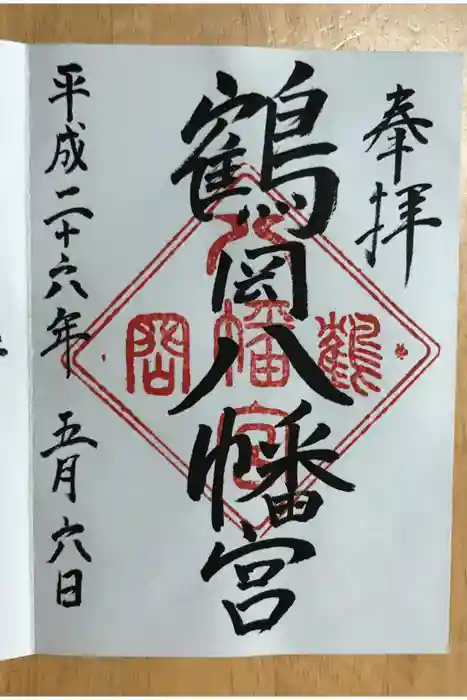 奉拝
鶴岡八幡宮
平成二十六年 五月六日
鶴
岡
八
幡
宮